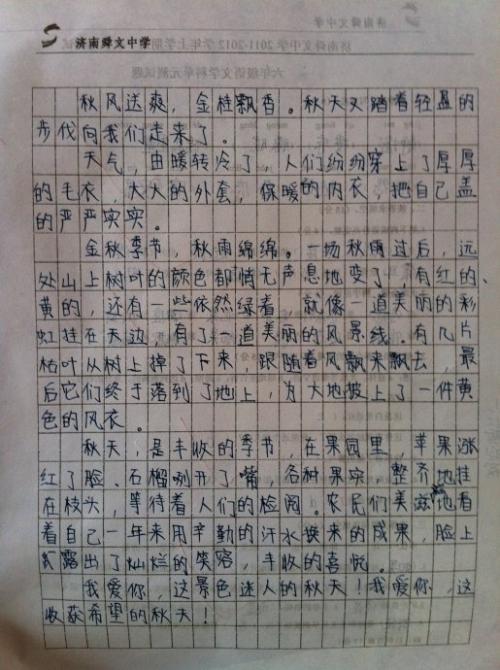 济南舜文中学
秋风送爽，金桂飘香。秋天又踏着轻盈的
步伐向我们走来了。
天气，由暖转冷了，人们纷纷穿上了厚厚
的毛衣，大大的外套，保暖的内衣，把自己盖
的严严实实。
金秋季节，秋雨绵绵。一场秋雨过后，远
处山上树叶的颜色都悄无声息地变了，有红的、
黄的，还有一些依然绿着，就像一道美丽的彩
虹挂在天边，有了一道美丽的风景线。有几片
枯叶从树上掉了下来，跟随着风飘来飘去，最
后它们终于落到了地上，为大地披上了一件黄
色的风衣。
秋天，是丰收的季节，在果园里，苹果涨
红了脸、石榴咧开了嘴，各种果实，整齐地挂
在枝头，等待着人们的检阅。农民们美滋地看
着自己一年来用辛勤的汗水换来的成果，脸上
露出了灿烂的笑容，丰收的喜悦。
我爱你，这景色迷人的秋天！我爱你，这
收获希望的秋天！